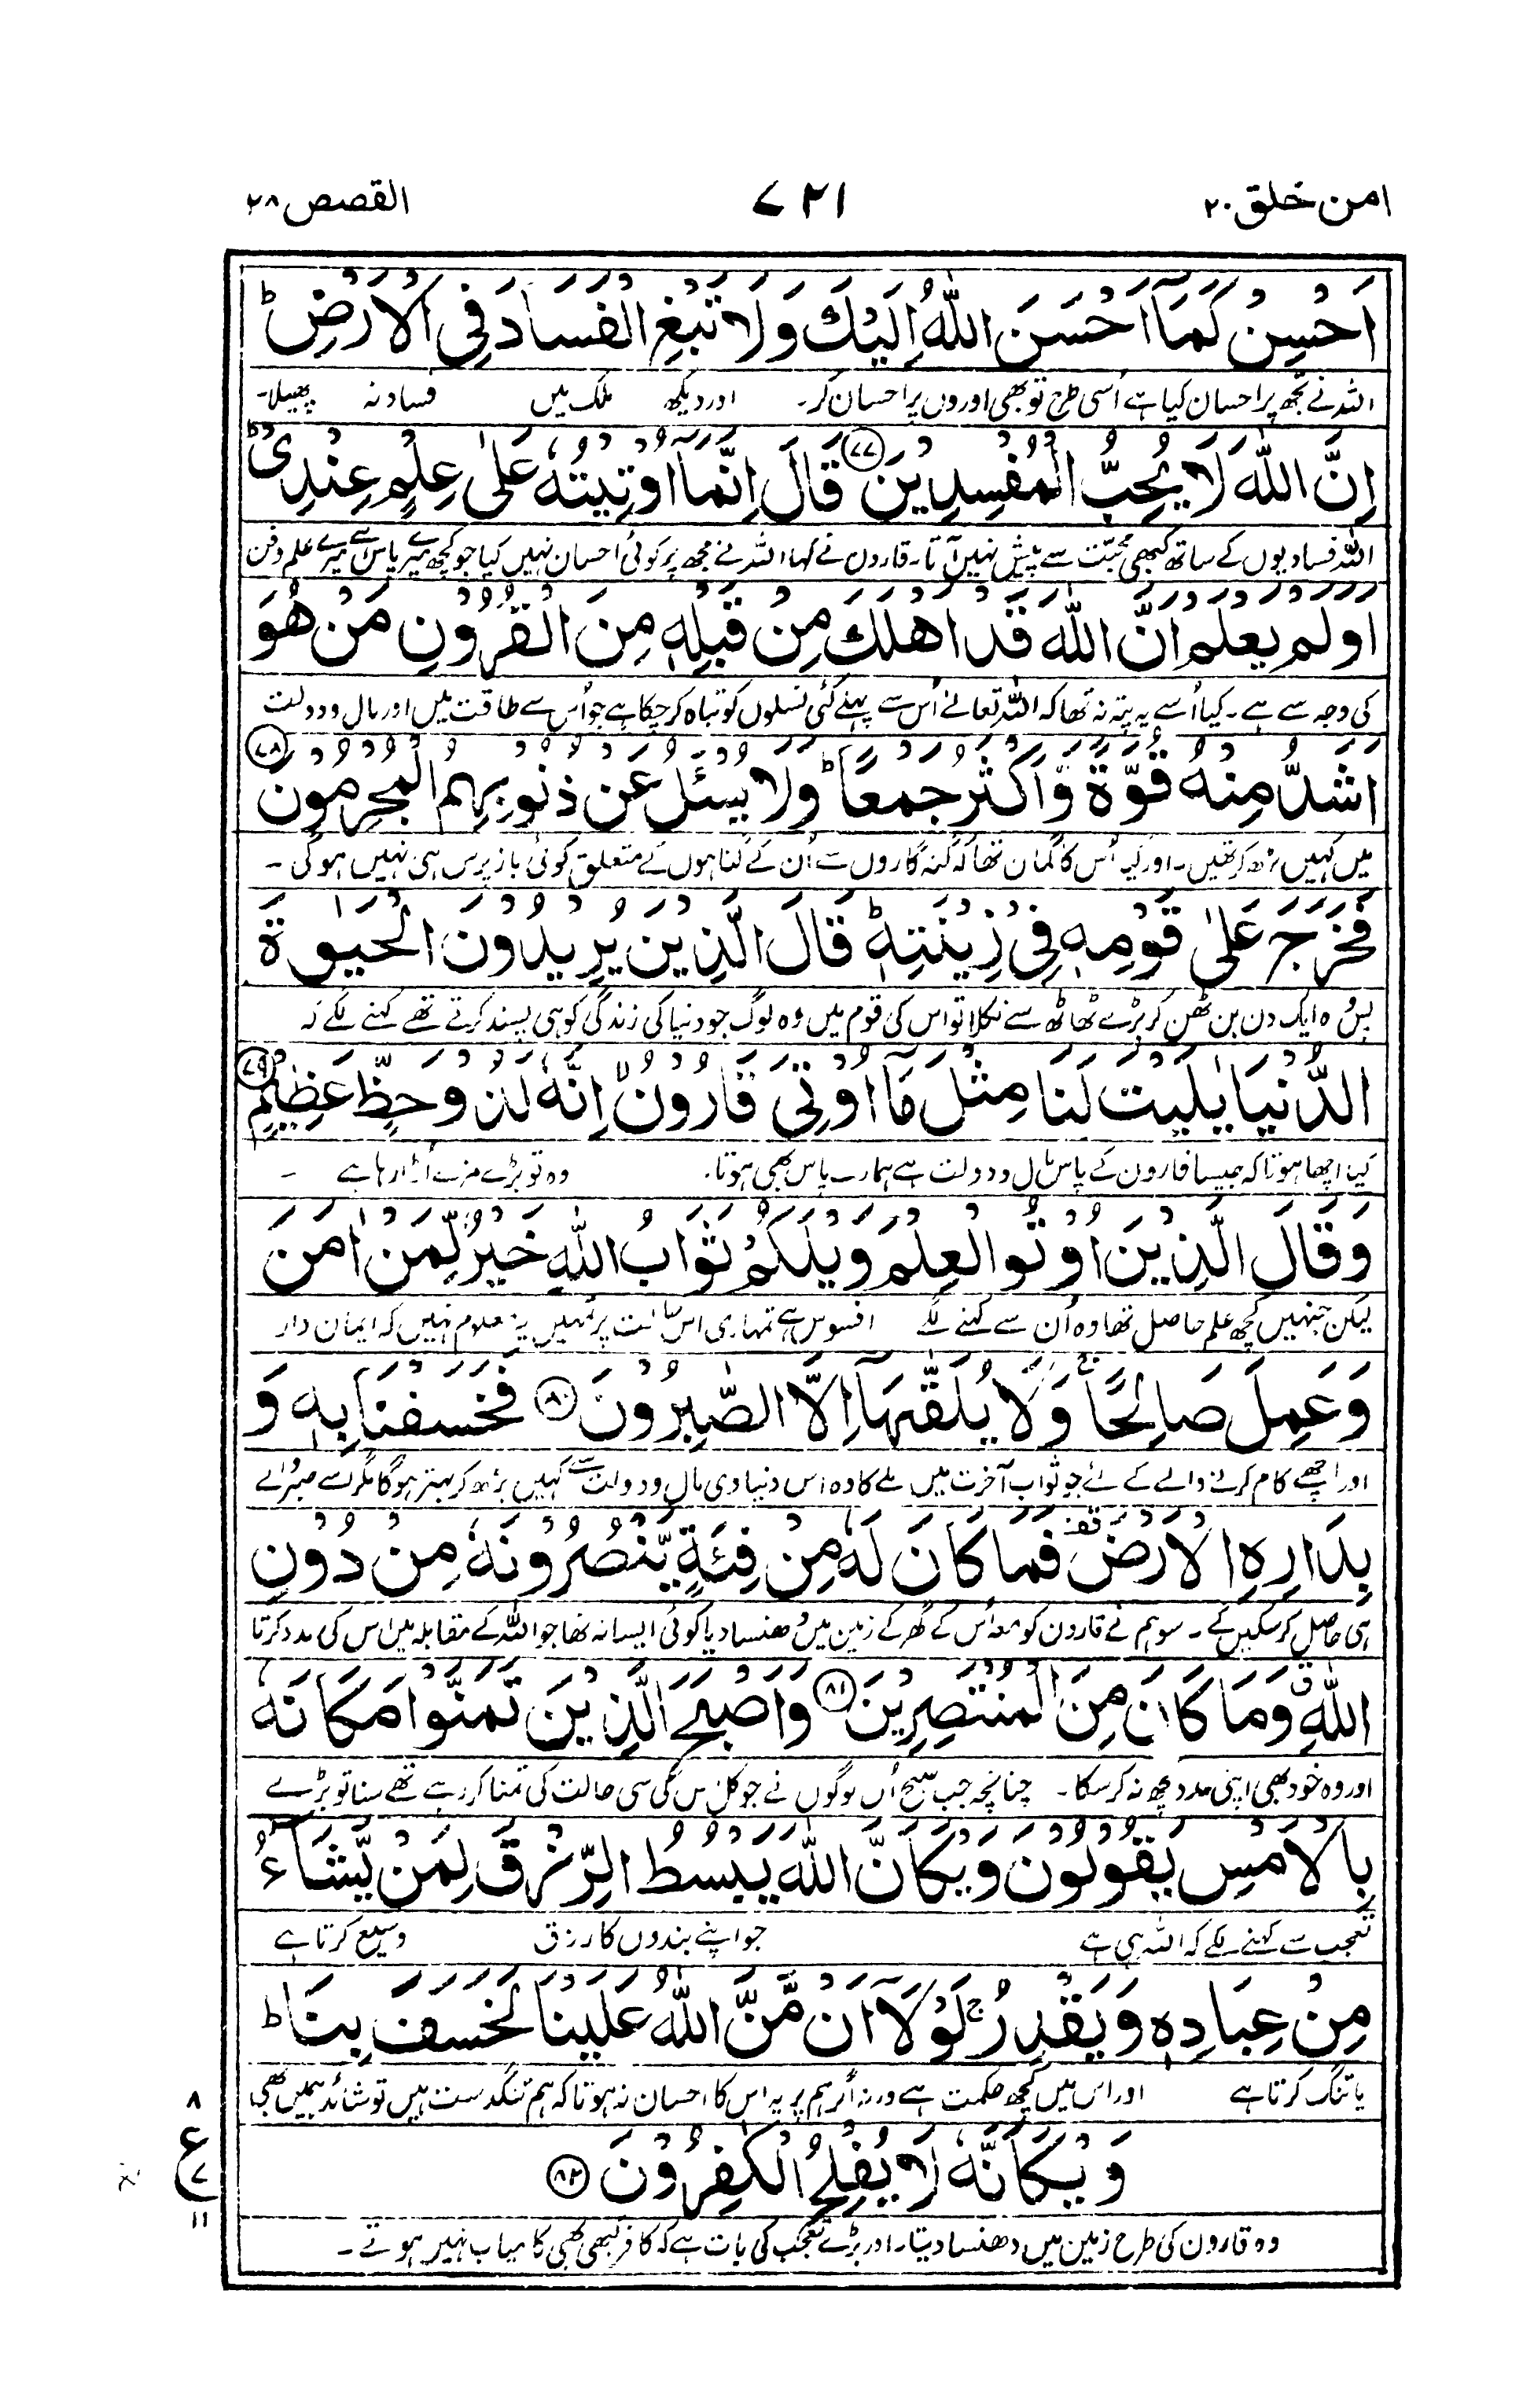 امن خلق ۲۰ ۷۲۱ القصص ۲۸
اَحْسِنْ كَمَاۤ اَحْسَنَ اللّٰهُ اِلَیْكَ وَ لَا تَبْغِ الْفَسَادَ فِی الْاَرْضِ ؕ
اللہ نے تجھ پر احسان کیا ہے اُسی طرح تو بھی اوروں پر احسان کر۔ اور دیکھ ملک میں فساد نہ پھیلا۔
اِنَّ اللّٰهَ لَا یُحِبُّ الْمُفْسِدِیْنَ ﴿۷۷﴾ قَالَ اِنَّمَاۤ اُوْتِیْتُهٗ عَلٰی عِلْمٍ عِنْدِیْ ؕ
اللہ فسادیوں کے ساتھ کبھی محبّت سے پیش نہیں آتا۔ قارون نے کہا اللہ نے مجھ پر کوئی احسان نہیں کیا جو کچھ میرے پاس ہے میرے علم و فن
اَوَ لَمْ یَعْلَمْ اَنَّ اللّٰهَ قَدْ اَهْلَكَ مِنْ قَبْلِهٖ مِنَ الْقُرُوْنِ مَنْ هُوَ
کی وجہ سے ہے۔ کیا اُسے یہ پتہ نہ تھا کہ اللہ تعالےٰ اُس سے پہلے کئی نسلوں کو تباہ کر چکا ہے جو اُس سے طاقت میں اور مال و دولت
اَشَدُّ مِنْهُ قُوَّةً وَّ اَكْثَرُ جَمْعًا ؕ وَ لَا یُسْـَٔلُ عَنْ ذُنُوْبِهِمُ الْمُجْرِمُوْنَ ﴿۷۸﴾
میں کہیں بڑھ کر تھیں۔ اور کیا اُس کا گمان تھا کہ گنہ گاروں سے اُن کے گناہوں کے متعلق کوئی باز پرس ہی نہیں ہوگی۔
فَخَرَجَ عَلٰی قَوْمِهٖ فِیْ زِیْنَتِهٖ ؕ قَالَ الَّذِیْنَ یُرِیْدُوْنَ الْحَیٰوةَ
پس وہ ایک دن بن ٹھن کر بڑے ٹھاٹھ سے نکلا تو اس کی قوم میں وہ لوگ جو دنیا کی زندگی کو ہی پسند کرتے تھے کہنے لگے کہ
الدُّنْیَا یٰلَیْتَ لَنَا مِثْلَ مَاۤ اُوْتِیَ قَارُوْنُ ۙ اِنَّهٗ لَذُوْ حَظٍّ عَظِیْمٍ ﴿۷۹﴾
کیا اچھا ہوتا کہ جیسا قارون کے پاس مال و دولت ہے ہمارے پاس بھی ہوتا۔ وہ تو بڑے مزے اُڑا رہا ہے ۔
وَ قَالَ الَّذِیْنَ اُوْتُوا الْعِلْمَ وَیْلَكُمْ ثَوَابُ اللّٰهِ خَیْرٌ لِّمَنْ اٰمَنَ
لیکن جنہیں کچھ علم حاصل تھا وہ اُن سے کہنے لگے افسوس ہے تمہاری اس حالت پر تمہیں یہ معلوم نہیں کہ ایمان دار
وَ عَمِلَ صَالِحًا ۚ وَ لَا یُلَقّٰىهَاۤ اِلَّا الصّٰبِرُوْنَ ﴿۸۰﴾ فَخَسَفْنَا بِهٖ وَ
اور اچھے کام کرنے والے کے لئے جو ثواب آخرت میں ملے گا وہ اس دنیاوی مال و دولت سے کہیں بڑھ کر بہتر ہوگا مگر اسے صبر والے
بِدَارِهِ الْاَرْضَ ۫ فَمَا كَانَ لَهٗ مِنْ فِئَةٍ یَّنْصُرُوْنَهٗ مِنْ دُوْنِ
ہی حاصل کر سکیں گے۔ سو ہم نے قارون کو معہ اُس کے گھر کے زمین میں دھنسا دیا کوئی ایسا نہ تھا جو اللہ کے مقابلہ میں اس کی مدد کرتا
اللّٰهِ ۗ وَ مَا كَانَ مِنَ الْمُنْتَصِرِیْنَ ﴿۸۱﴾ وَ اَصْبَحَ الَّذِیْنَ تَمَنَّوْا مَكَانَهٗ
اور وہ خود بھی اپنی مدد کچھ نہ کر سکا۔ چنانچہ جب صبح اُن لوگوں نے جو کل اس کی سی حالت کی تمنا کر رہے تھے سنا تو بڑے
بِالْاَمْسِ یَقُوْلُوْنَ وَیْكَاَنَّ اللّٰهَ یَبْسُطُ الرِّزْقَ لِمَنْ یَّشَآءُ
تعجب سے کہنے لگے کہ اللہ ہی ہے جو اپنے بندوں کا رزق وسیع کرتا ہے
مِنْ عِبَادِهٖ وَ یَقْدِرُ ۚ لَوْ لَاۤ اَنْ مَّنَّ اللّٰهُ عَلَیْنَا لَخَسَفَ بِنَا ؕ
یا تنگ کرتا ہے اور اس میں کچھ حکمت ہے ورنہ اگر ہم پر یہ اس کا احسان نہ ہوتا کہ ہم تنگدست ہیں تو شائد ہمیں بھی
وَیْكَاَنَّهٗ لَا یُفْلِحُ الْكٰفِرُوْنَ ﴿۸۲﴾
۸
ع
۷
۱۱
وہ قارون کی طرح زمین میں دھنسا دیتا۔ اور بڑے تعجّب کی بات ہے کہ کافر کبھی بھی کامیاب نہیں ہوتے۔